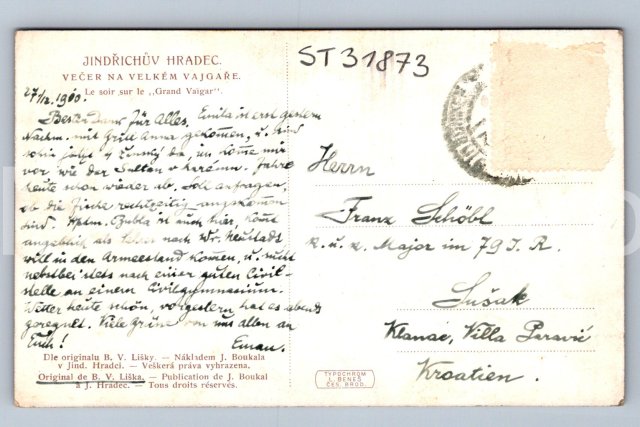 JINDŘICHŮV HRADEC.
VEČER NA VELKÉM VAJGAŘE.
Le soir sur le „Grand Vaigar"
ST31873
27/12. 1910.
Besten Dank für Alles. Emila ist erst gestern
Nachm. mit Anna gekommen, u. sind
jetzt da,
vor wie der Sultan
heute schon wieder ab. Soll anfragen,
ob die Fische rechtzeitig angekommen
sind. Bubla ist auch hier,
angeblich als nach Wr. Neustadt
will in den Armeestand kommen, u. sucht
nebstbei stets nach einer guten Civil-
stelle an einem Civilgymnasium.
Wetter heute schön, vorgestern hat es abends
geregnet. Viele Grüße von uns allen an
Euch!
Herrn
Franz Schöbl
k. u. k. Major im 79 I. R.
Sušak
Klanac, Villa
Kroatien.
Dle originalu B. V. Lišky. — Nákladem J. Boukala
v Jind. Hradci. — Veškerá práva vyhrazena.
Original de B. V. Liška. — Publication de J. Boukal
a J. Hradec. — Tous droits réservés.
TYPOCHROM
L. BENEŠ
ČES. BROD.